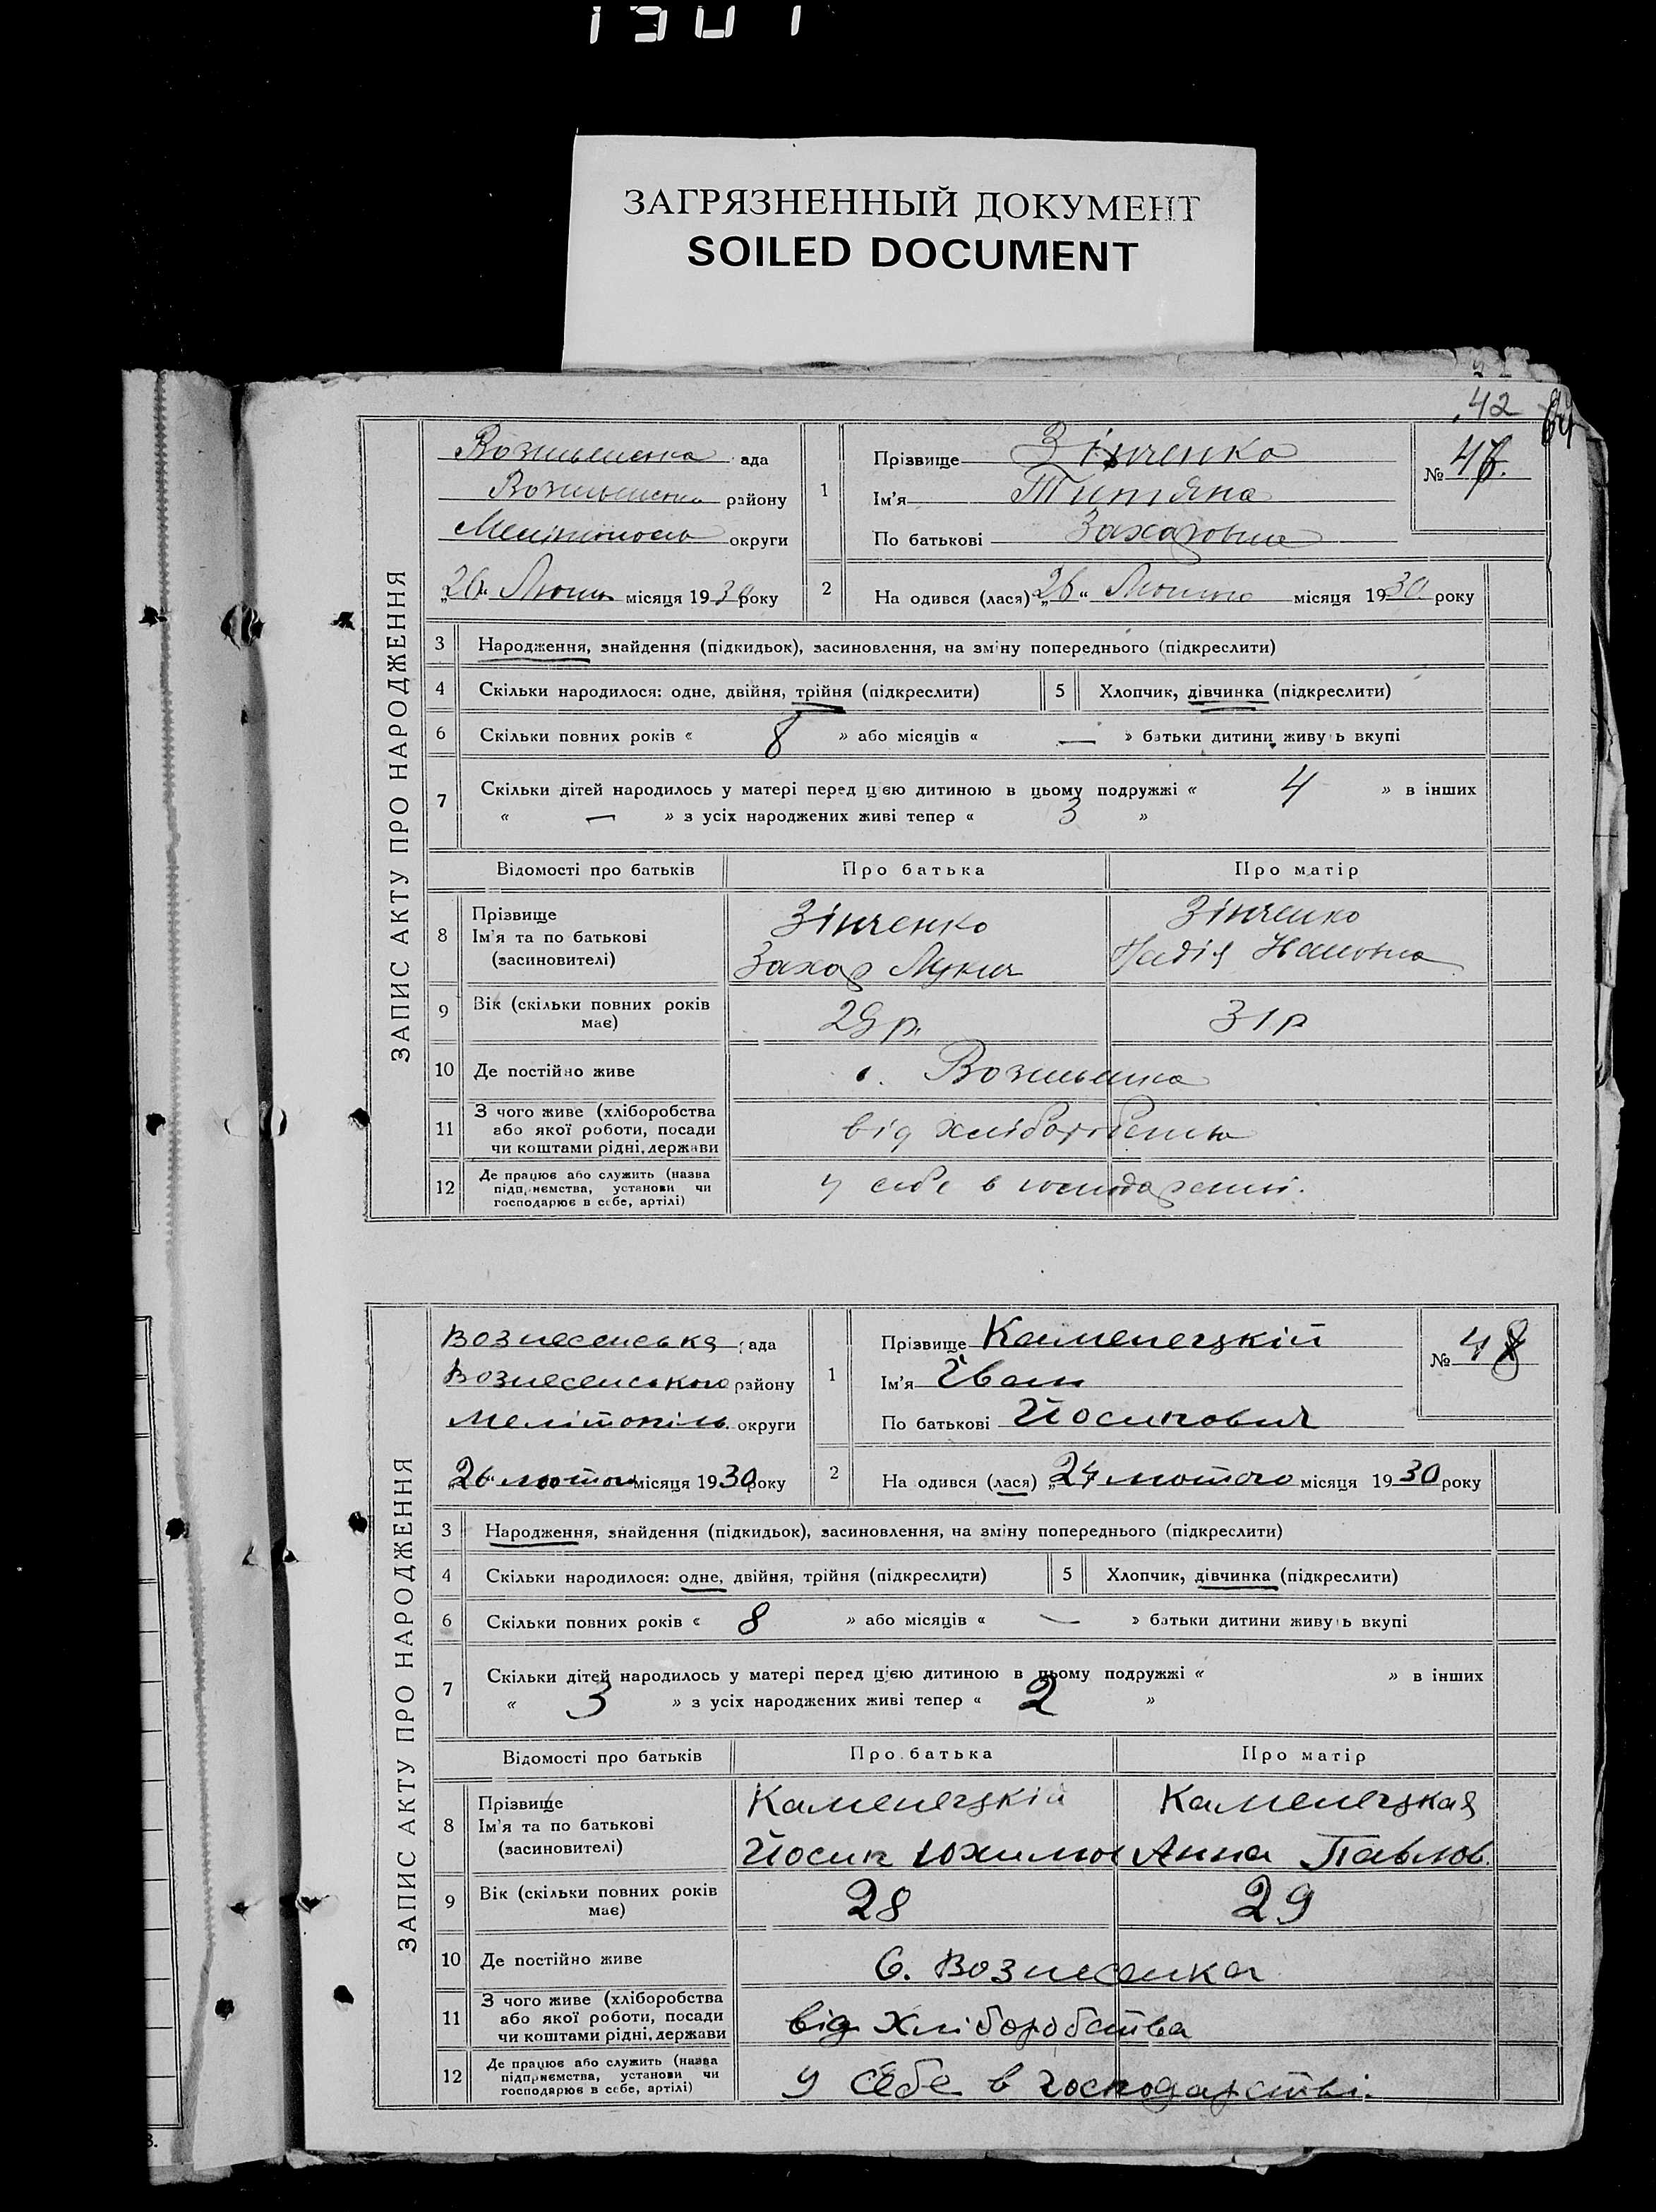 1301
ЗАГРЯЗНЕННЫЙ ДОКУМЕНТ
SOILED DOCUMENT
42
ЗАПИС АКТУ ПРО НАРОДЖЕННЯ
рада
району
округи
„26“ місяця 1930 року
1
Прізвище Зінченко
Ім'я Титяна
По батькові Захаровна
№ 47.
2 На одився (лася) „26“ місяця 1930 року
3 Народження, знайдення (підкидьок), засиновлення, на зміну попереднього (підкреслити)
4 Скільки народилося: одне, двійня, трійня (підкреслити) 5 Хлопчик, дівчинка (підкреслити)
6 Скільки повних років « 8 » або місяців « — » батьки дитини живуть вкупі
7 Скільки дітей народилось у матері перед цією дитиною в цьому подружжі « 4 » в інших
« — » з усіх народжених живі тепер « 3 »
Відомості про батьків Про батька Про матір
8 Прізвище
Ім'я та по батькові
(засиновителі)
Зінченко
Захар Лукич
Зінченко
Надія
9 Вік (скільки повних років має) 29 р. 31 р
10 Де постійно живе
11 З чого живе (хліборобства
або якої роботи, посади
чи коштами рідні, держави
від
12 Де працює або служить (назва
підприємства, установи чи
господарює в себе, артілі)
у себе в
ЗАПИС АКТУ ПРО НАРОДЖЕННЯ
Вознесенська рада
Вознесенського району
Мелітопіль округи
„26“ лютого місяця 1930 року
1
Прізвище Каменецкій
Ім'я Іван
По батькові Йосипович
№ 48
2 На одився (лася) „24 лютого місяця 1930 року
3 Народження, знайдення (підкидьок), засиновлення, на зміну попереднього (підкреслити)
4 Скільки народилося: одне, двійня, трійня (підкреслити) 5 Хлопчик, дівчинка (підкреслити)
6 Скільки повних років « 8 » або місяців « — » батьки дитини живуть вкупі
7 Скільки дітей народилось у матері перед цією дитиною в цьому подружжі « » в інших
« 3 » з усіх народжених живі тепер « 2 »
Відомості про батьків Про батька Про матір
8 Прізвище
Ім'я та по батькові
(засиновителі)
Каменецкій
Йосип Юхимов
Каменецкая
Анна Павлов.
9 Вік (скільки повних років має) 28 29
10 Де постійно живе С. Вознесенка
11 З чого живе (хліборобства
або якої роботи, посади
чи коштами рідні, держави
від Хліборобства
12 Де працює або служить (назва
підприємства, установи чи
господарює в себе, артілі)
У себе в господарстві.